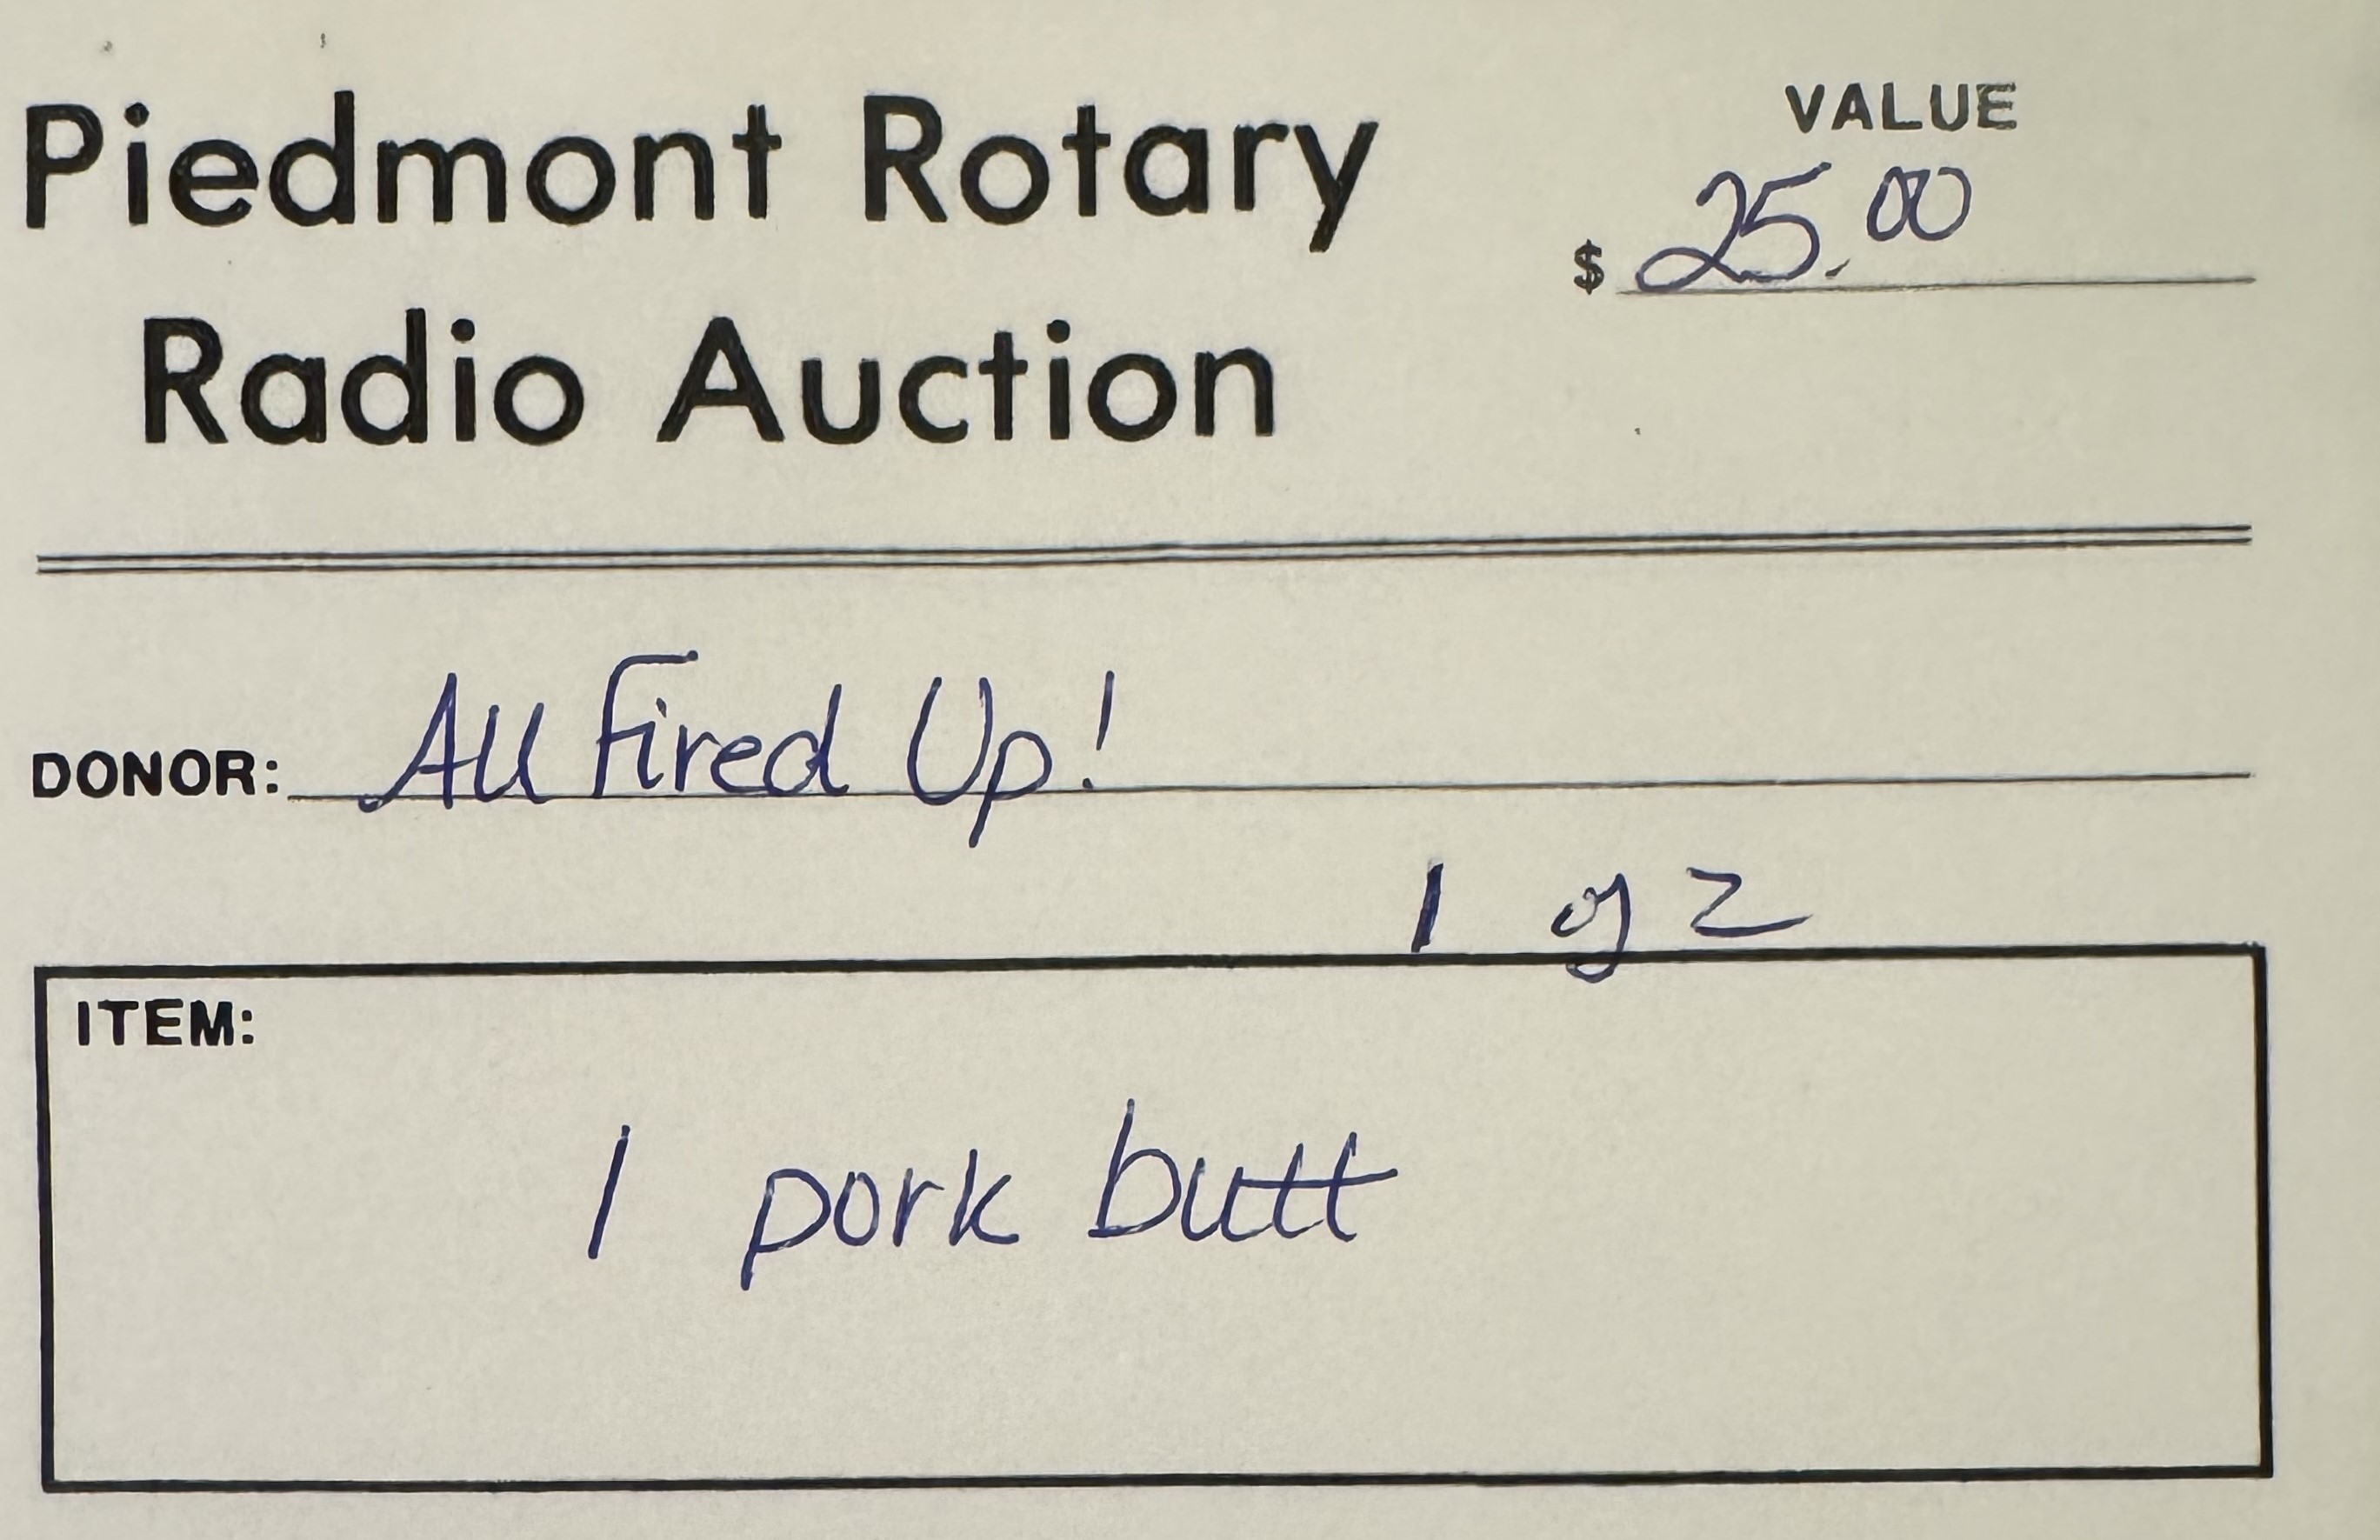 Piedmont Rotary
Radio Auction
VALUE
$ 25.00
DONOR: All Fired Up!
1 of 2
ITEM:
1 pork butt